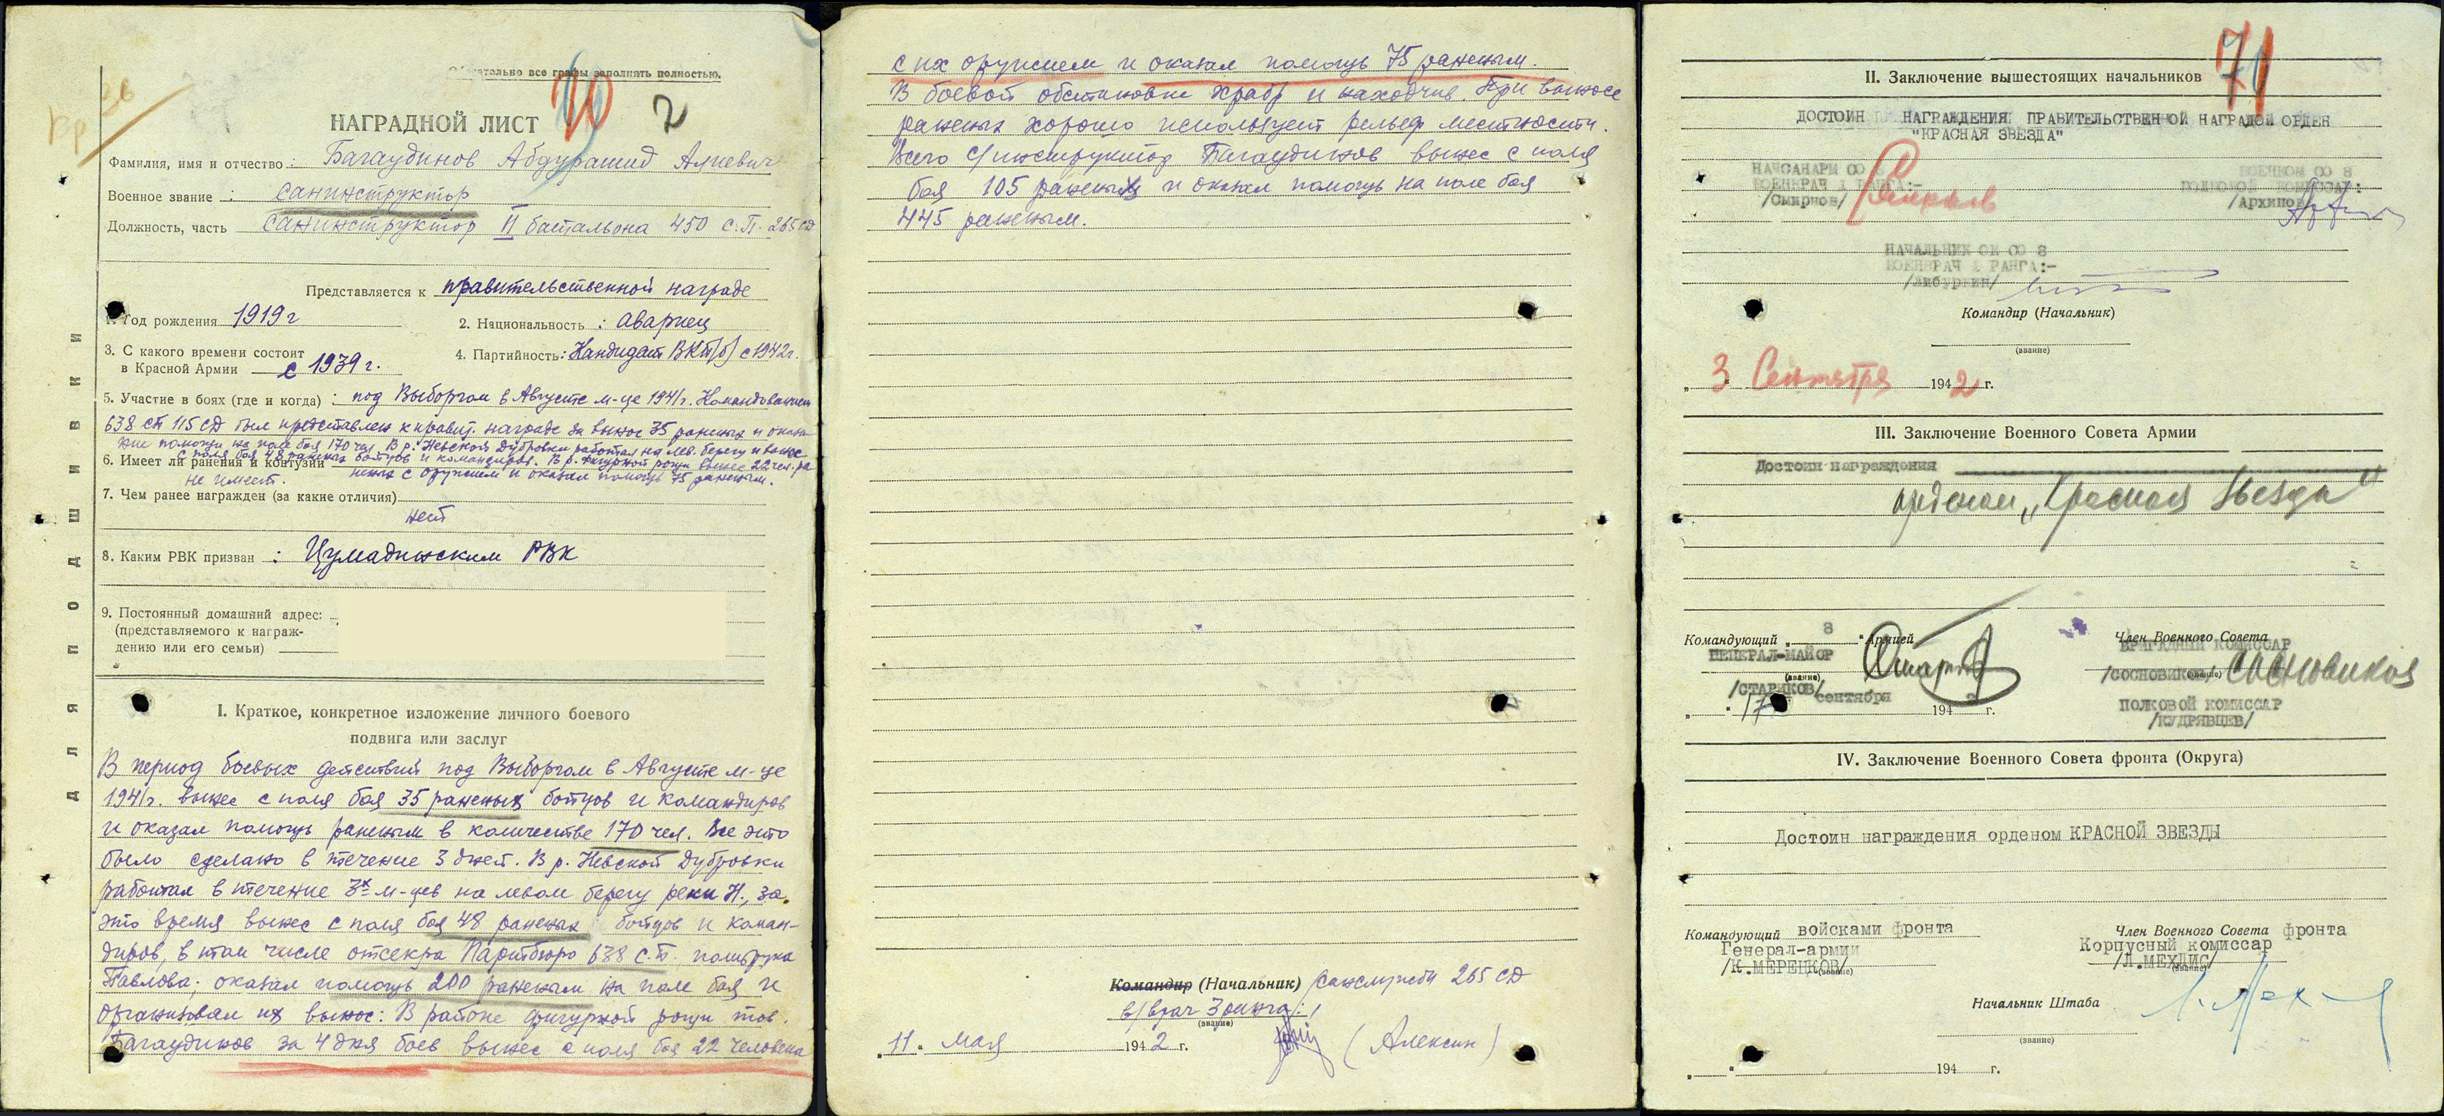 Обязательно все графы заполнять полностью.
70
2
НАГРАДНОЙ ЛИСТ
Фамилия, имя и отчество: Багаудинов Абдурашид Алиевич
Военное звание: санинструктор
Должность, часть санинструктор II батальона 450 с.п. 265 сд
Представляется к правительственной награде
1. Год рождения 1919 г
2. Национальность: аварец
3. С какого времени состоит
в Красной Армии с 1939 г.
4. Партийность: Кандидат ВКП(б) с 1942 г.
5. Участие в боях (где и когда): под Выборгом в Августе м-це 1941 г. Командованием
638 сп 115 СД был представлен к правит. награде за вынос 35 раненых и оказа-
ние помощи на поле боя 170 чел. В р. Невской Дубровки работал на лев. берегу и вынес
с поля боя 48 раненых бойцов и командиров. В р. фигурной рощи вынес 22 чел. ра
6. Имеет ли ранения и контузии
неных с оружием и оказал помощь 75 раненым.
не имеет.
7. Чем ранее награжден (за какие отличия)
нет
8. Каким РВК призван: Цумадинским РВК
9. Постоянный домашний адрес:
(представляемого к награж-
дению или его семьи)
ДЛЯ ПОДШИВКИ
I. Краткое, конкретное изложение личного боевого
подвига или заслуг
В период боевых действий под Выборгом в Августе м-це
1941 г. вынес с поля боя 35 раненых бойцов и командиров
и оказал помощь раненым в количестве 170 чел. Все это
было сделано в течение 3 дней. В р. Невской Дубровки
работал в течение 3х м-цев на левом берегу реки Н., за
это время вынес с поля боя 48 раненых бойцов и коман-
диров, в том числе отсекра Партбюро 638 с.п. политрука
Павлова, оказал помощь 200 раненым на поле боя и
организовал их вынос. В районе фигурной рощи тов.
Багаудинов за 4 дня боев вынес с поля боя 22 человека
с их оружием и оказал помощь 75 раненым.
В боевой обстановке храбр и находчив. При выносе
раненых хорошо использует рельеф местности.
Всего с/инструктор Багаудинов вынес с поля
боя 105 раненых и оказал помощь на поле боя
445 раненым.
Командир (Начальник) Санслужбы 265 СД
в/врач 3 ранга:
(звание)
"11" мая 1942 г. (Алексин)
71
II. Заключение вышестоящих начальников
ДОСТОИН НАГРАЖДЕНИЯ ПРАВИТЕЛЬСТВЕННОЙ НАГРАДОЙ ОРДЕН
"КРАСНАЯ ЗВЕЗДА"
НАЧСАНАРМ ОО 8
ВОЕНВРАЧ 1 РАНГА:-
/Смирнов/
ВОЕНКОМ ОО 8
ПОЛКОВОЙ КОМИССАР:
/Архипов/
НАЧАЛЬНИК ОК ОО 8
ВОЕНВРАЧ 2 РАНГА:-
Командир (Начальник)
(звание)
"3" Сентября 1942 г.
III. Заключение Военного Совета Армии
Достоин награждения
орденом „Красная Звезда"
Командующий 8 Армией
ГЕНЕРАЛ-МАЙОР
(звание)
/СТАРИКОВ/
"17" сентября 1942 г.
Член Военного Совета
БРИГАДНЫЙ КОМИССАР
/СОСНОВИКОВ/ Сосновиков
ПОЛКОВОЙ КОМИССАР
/КУДРЯВЦЕВ/
IV. Заключение Военного Совета фронта (Округа)
Достоин награждения орденом КРАСНОЙ ЗВЕЗДЫ
Командующий войсками фронта
Генерал-армии
/К.МЕРЕЦКОВ/
(звание)
Член Военного Совета фронта
Корпусный комиссар
/Л.МЕХЛИС/
(звание)
Начальник Штаба
(звание)
" " 194 г.